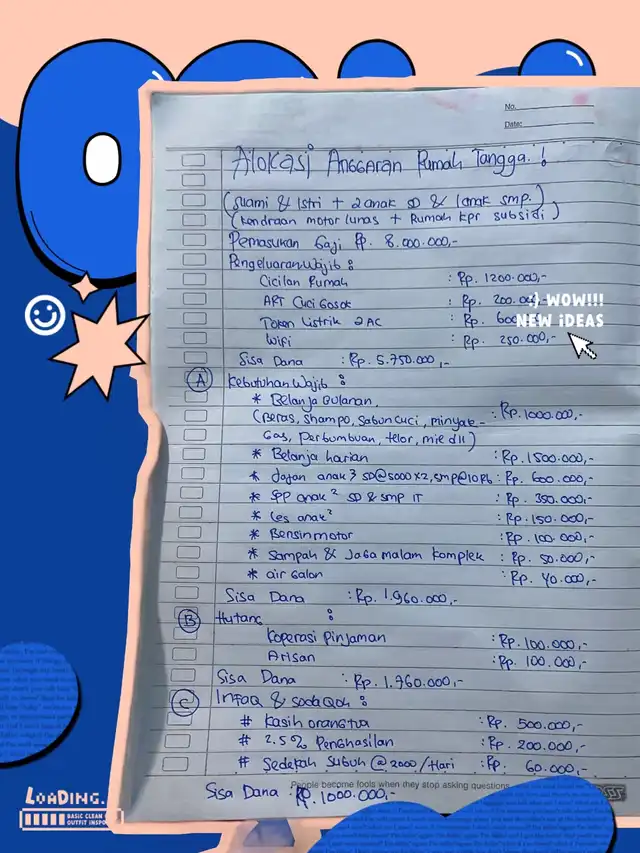 No.
Date:
Alokasi Anggaran Rumah Tangga. !
(Suami & Istri + 2 anak SD & 1 anak smp.)
(Kendraan motor lunas + Rumah kpr subsidi)
Pemasukan Gaji Rp. 8.000.000,-
Pengeluaran Wajib :
Cicilan Rumah : Rp. 1200.000,-
ART Cuci Gosok : Rp. 200.00
:) WOW!!!
Token Listrik 2 AC : Rp. 600
NEW iDEAS
Wifi : Rp. 250.000,-
Sisa Dana : Rp. 5.750.000,-
A Kebutuhan Wajib :
* Belanja Bulanan
(Beras, shampo, sabun cuci, minyak- : Rp. 1000.000,-
Gas, perbumbuan, telor, mie dll)
* Belanja harian : Rp. 1500.000,-
* Jajan anak³ SD@5000x2, smp@10Rb : Rp. 600.000,-
* SPP anak² SD & smp IT : Rp. 350.000,-
* Les anak² : Rp. 150.000,-
* Bensin motor : Rp. 100.000,-
* Sampah & Jaga malam komplek : Rp. 50.000,-
* air Galon : Rp. 40.000,-
Sisa Dana : Rp. 1.960.000,-
B Hutang :
Koperasi Pinjaman : Rp. 100.000,-
Arisan : Rp. 100.000,-
Sisa Dana : Rp. 1.760.000,-
C Infaq & sodaqoh :
# Kasih orangtua : Rp. 500.000,-
# 2.5% Penghasilan : Rp. 200.000,-
# Sedekah Subuh @2000/Hari : Rp. 60.000,-
People become fools when they stop asking questions
Sisa Dana : Rp. 1000.000,-
LOADING.
BASIC CLEAN
OUTFIT INSPO